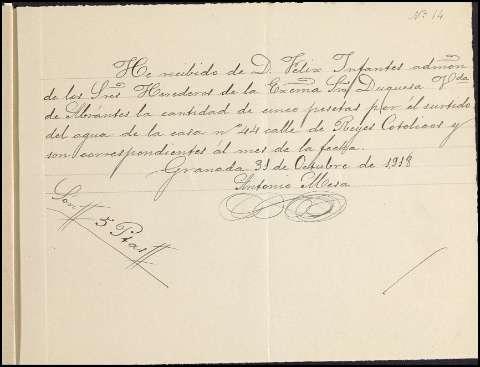 Nº 14
He recibido de D. Félix Infantes admon
de los Sres Herederos de la Excma Sra Duquesa Vda
de Abrántes la cantidad de cinco pesetas por el surtido
del agua de la casa nº 44 calle de Reyes Catolicos y
son correspondientes al mes de la fecha.
Granada 31 de Octubre de 1918
Antonio Mesa
Son # 5 Ptas #